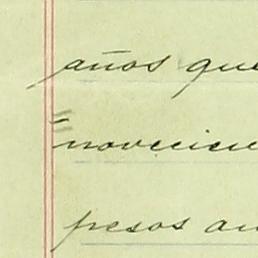 años que
= novecien
pesos an